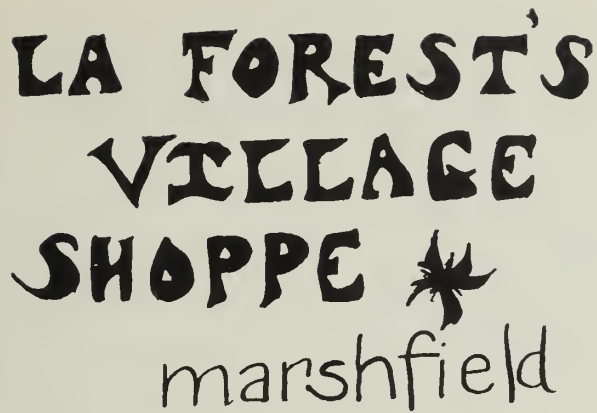 LA FOREST'S
VILLAGE
SHOPPE
marshfield